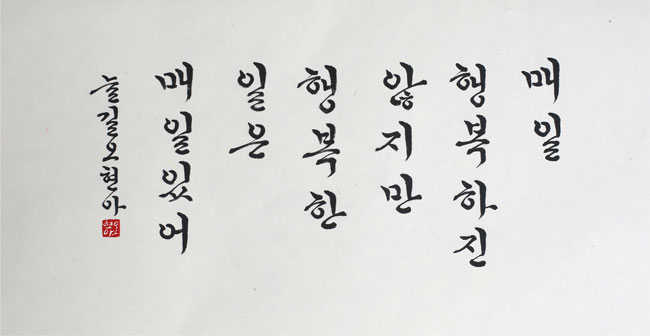 매일
행복하진
않지만
행복한
일은
매일있어
늘길오현아